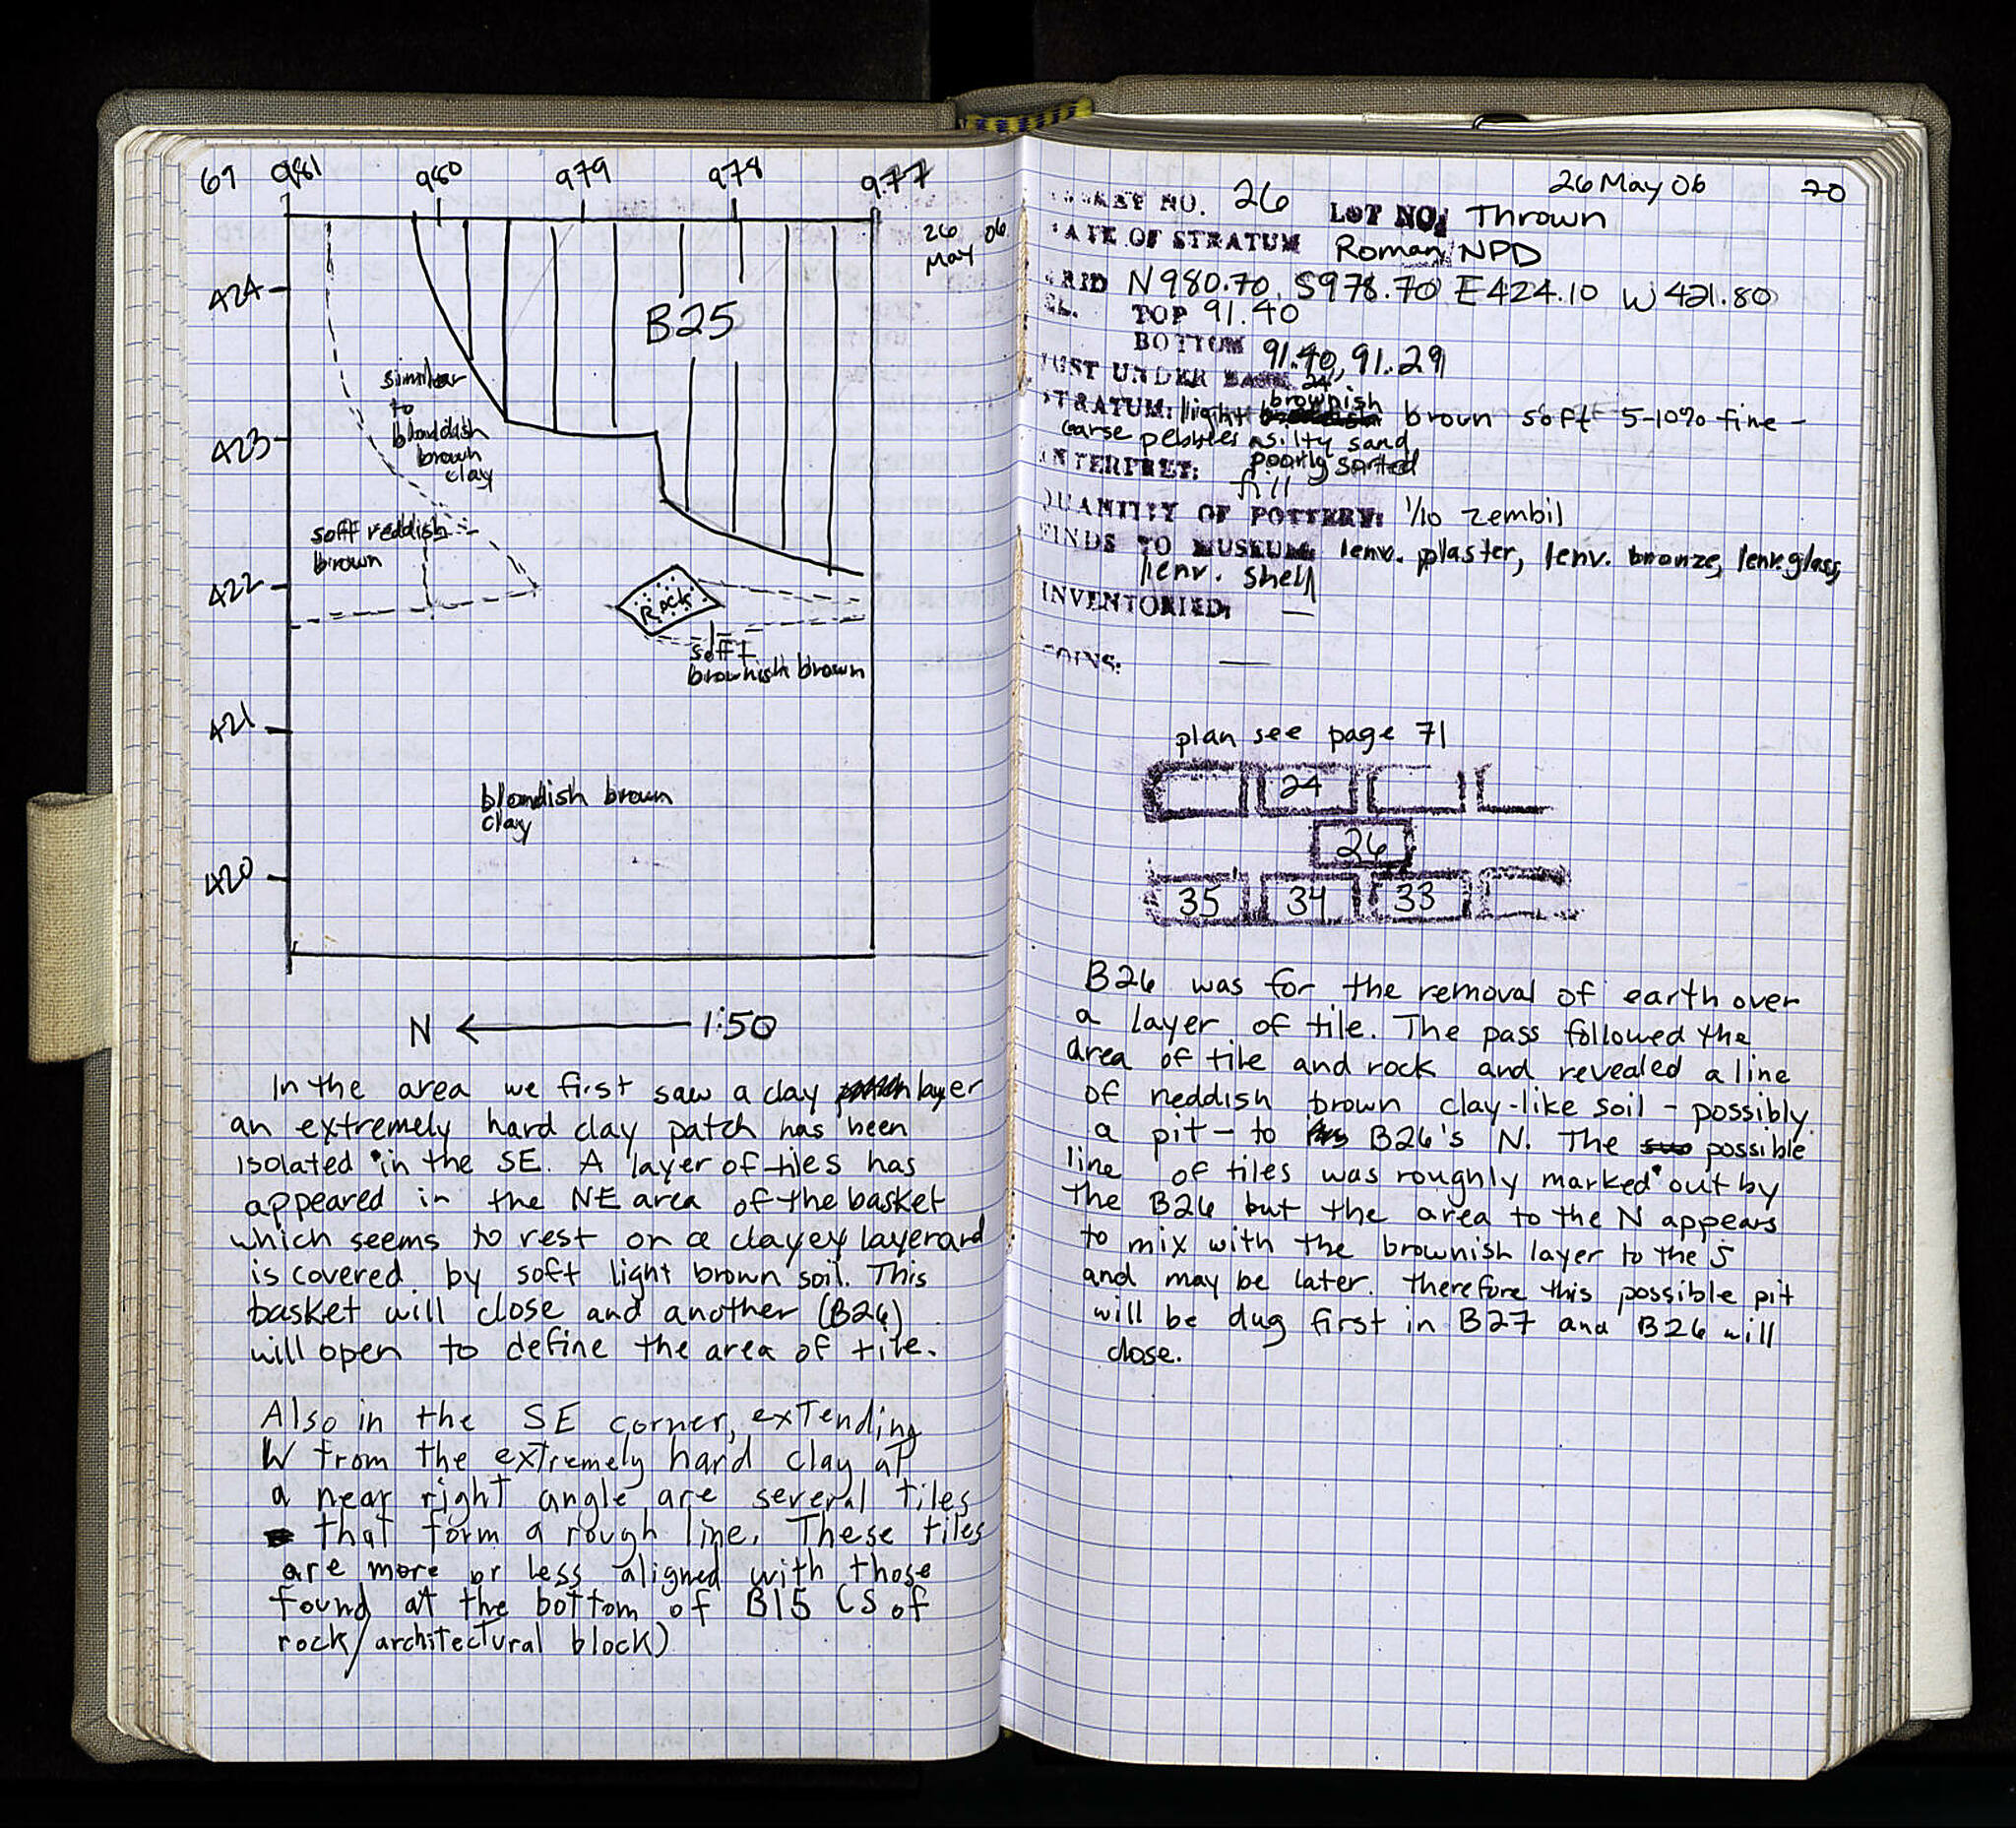 69
981 980 979 978 977
26 May 06
424
B25
similar
to
blondish
brown
clay
423
soft reddish
brown
422
Rock
soft
brownish brown
421
blondish brown
clay
420
N ← 1:50
In the area we first saw a clay layer
an extremely hard clay patch has been
isolated in the SE. A layer of tiles has
appeared in the NE area of the basket
which seems to rest on a clayey layer and
is covered by soft light brown soil. This
basket will close and another (B26)
will open to define the area of tile.
Also in the SE corner, extending
W from the extremely hard clay at
a near right angle are several tiles
that form a rough line. These tiles
are more or less aligned with those
found at the bottom of B15 (S of
rock/architectural block)
26 May 06 70
BASKET NO. 26 LOT NO: Thrown
DATE OF STRATUM Roman, NPD
GRID N980.70, S978.70 E424.10 W421.80
EL. TOP 91.40
BOTTOM 91.40, 91.29
JUST UNDER BASK. 24
STRATUM: light brownish brown soft 5-10% fine -
coarse pebbles silty sand
poorly sorted
INTERPRET: fill
QUANTITY OF POTTERY: 1/10 zembil
FINDS TO MUSEUM: 1env. plaster, 1env. bronze, 1env. glass,
1env. shell
INVENTORIED: —
COINS: —
plan see page 71
24
26
35 34 33
B26 was for the removal of earth over
a layer of tile. The pass followed the
area of tile and rock and revealed a line
of reddish brown clay-like soil - possibly
a pit - to B26's N. The possible
line of tiles was roughly marked out by
the B26 but the area to the N appears
to mix with the brownish layer to the S
and may be later. therefore this possible pit
will be dug first in B27 and B26 will
close.